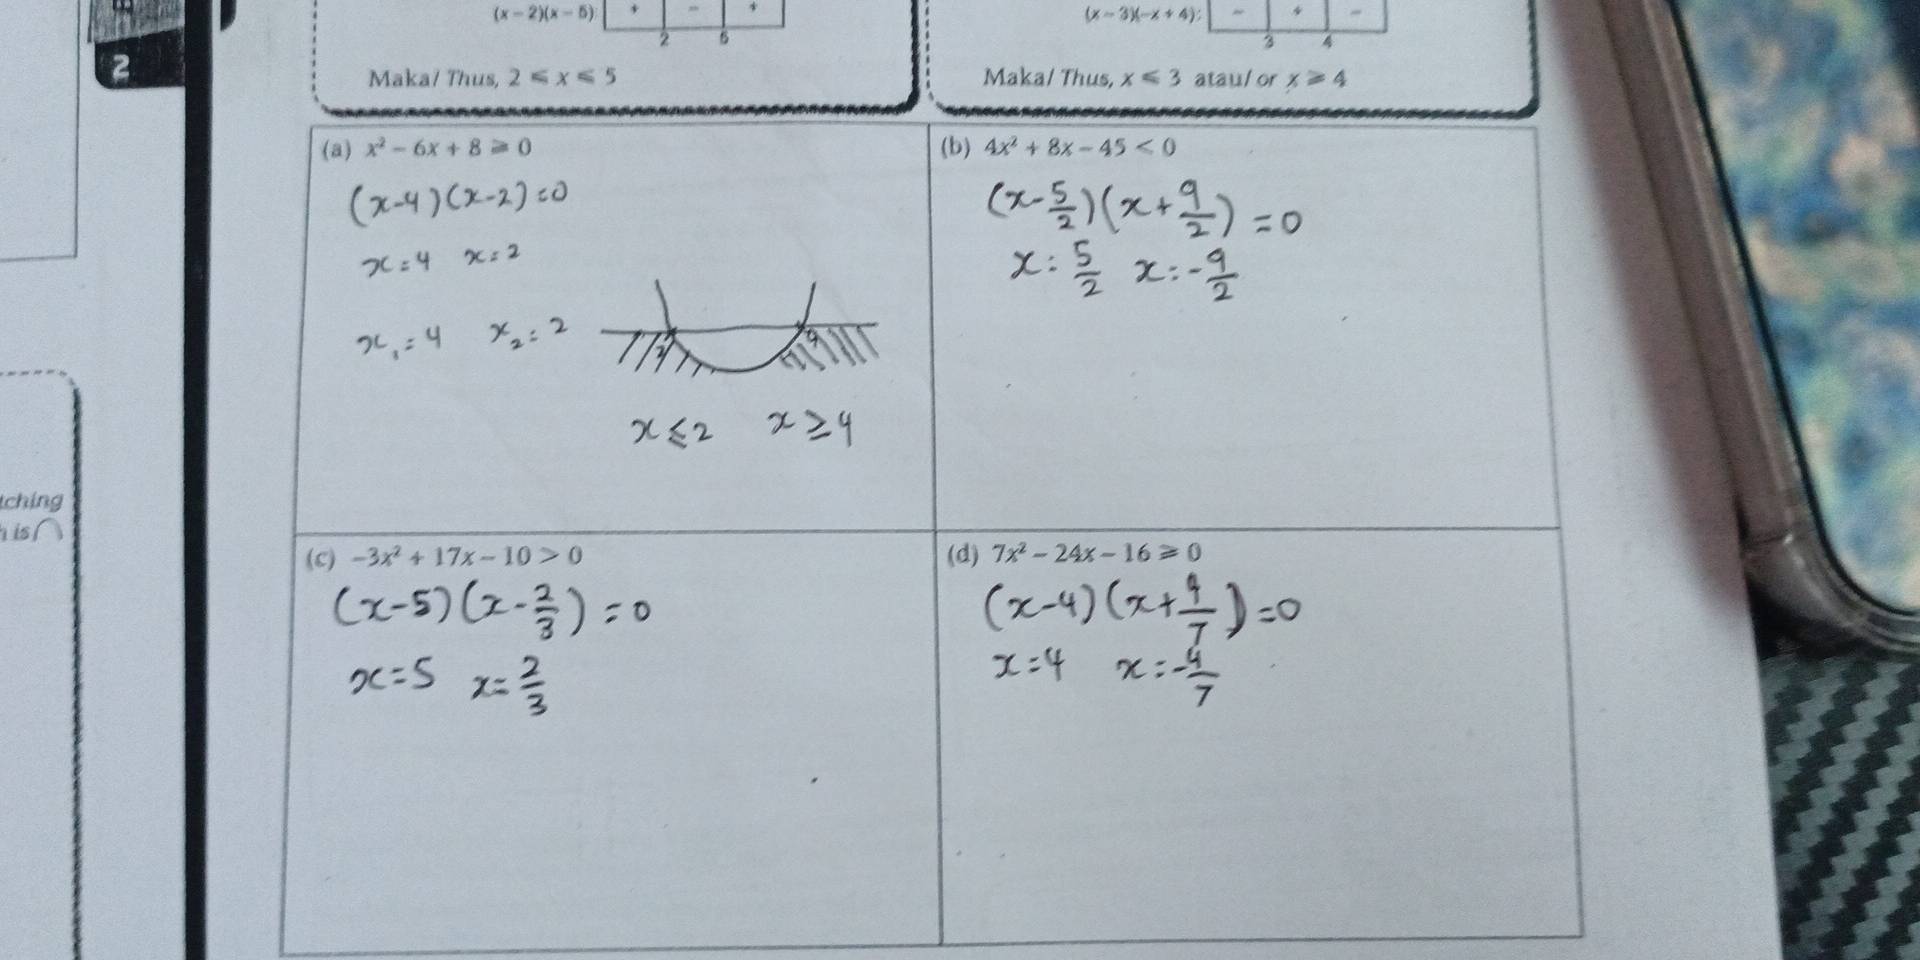 (x – 2)(x – 5): + – +
2 5
Maka/ Thus, 2 ⩽ x ⩽ 5
(x – 3)(–x + 4): – + –
3 4
Maka/ Thus, x ⩽ 3 atau/ or x ⩾ 4
2
(a) x² – 6x + 8 ⩾ 0
(x-4)(x-2)=0
x=4 x=2
x₁=4 x₂=2
2 4
x≤2 x≥4
(b) 4x² + 8x – 45 < 0
(x-5/2)(x+9/2)=0
x=5/2 x=-9/2
tching
is
(c) –3x² + 17x – 10 > 0
(x-5)(x-2/3)=0
x=5 x=2/3
(d) 7x² – 24x – 16 ⩾ 0
(x-4)(x+4/7)=0
x=4 x=-4/7